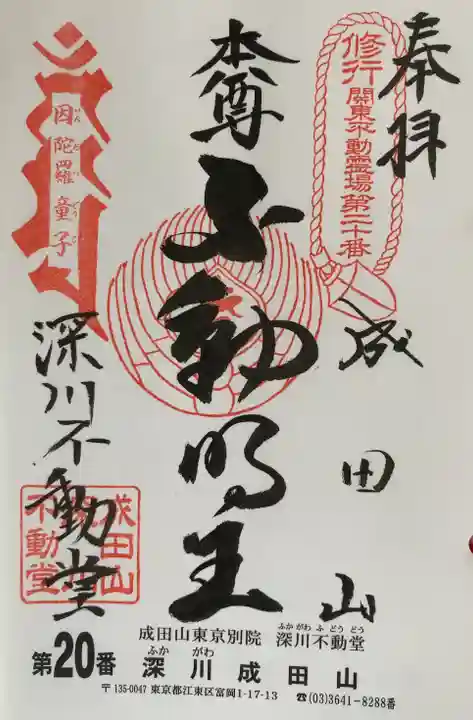 奉拝
修行 関東不動霊場第二十番
成田山
本尊 不動明王
因陀羅童子
いんだらどうじ
深川不動堂
成田山
不動堂
成田山東京別院 深川不動堂
ふかがわふどうどう
第20番 深川成田山
ふかがわ
〒135-0047 東京都江東区富岡1-17-13 ☎(03)3641-8288番